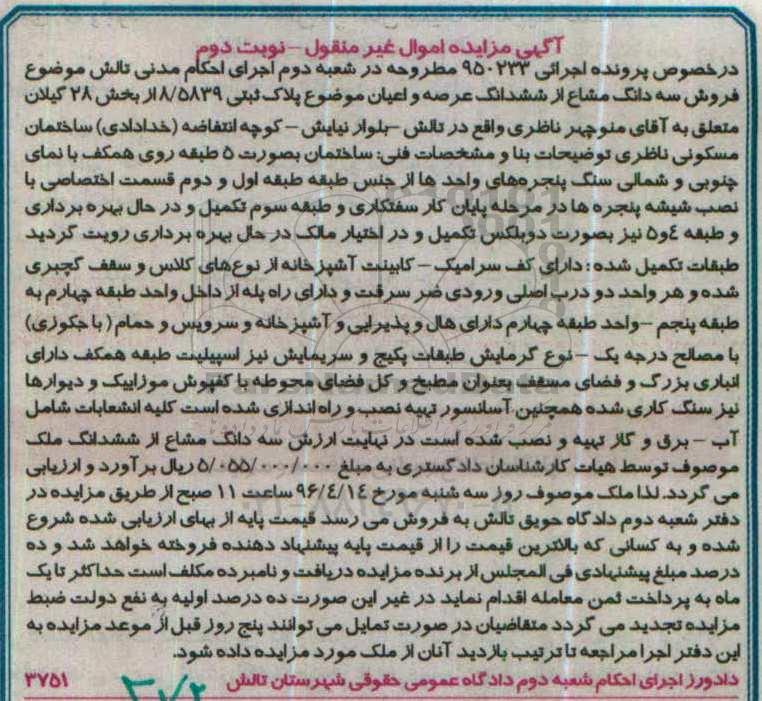 آگهی مزایده اموال غیر منقول – نوبت دوم
درخصوص پرونده اجرائی ۹۵۰۲۳۳ مطروحه در شعبه دوم اجرای احکام مدنی تالش موضوع
فروش سه دانگ مشاع از ششدانگ عرصه و اعیان موضوع پلاک ثبتی ۸/۵۸۳۹ از بخش ۲۸ گیلان
متعلق به آقای منوچهر ناظری واقع در تالش –بلوار نیایش – کوچه انتفاضه (خدادادی) ساختمان
مسکونی ناظری توضیحات بنا و مشخصات فنی: ساختمان بصورت ۵ طبقه روی همکف با نمای
جنوبی و شمالی سنگ پنجره‌های واحد ها از جنس طبقه طبقه اول و دوم قسمت اختصاصی با
نصب شیشه پنجره ها در مرحله پایان کار سفتکاری و طبقه سوم تکمیل و در حال بهره برداری
و طبقه ٤و۵ نیز بصورت دوبلکس تکمیل و در اختیار مالک در حال بهره برداری رویت گردید
طبقات تکمیل شده: دارای کف سرامیک – کابینت آشپزخانه از نوع‌های کلاس و سقف گچبری
شده و هر واحد دو درب اصلی ورودی ضر سرقت و دارای راه پله از داخل واحد طبقه چهارم به
طبقه پنجم –واحد طبقه چهارم دارای هال و پذیرایی و آشپزخانه و سرویس و حمام ( با جکوزی)
با مصالح درجه یک – نوع گرمایش طبقات پکیج و سریمایش نیز اسپیلیت طبقه همکف دارای
انباری بزرگ و فضای مسقف بعنوان مطبخ و کل فضای محوطه با کفپوش موزاییک و دیوارها
نیز سنگ کاری شده همچنین آسانسور تهیه نصب و راه اندازی شده است کلیه انشعابات شامل
آب – برق و گاز تهیه و نصب شده است در نهایت ارزش سه دانگ مشاع از ششدانگ ملک
موصوف توسط هیات کارشناسان دادگستری به مبلغ ۵/۰۵۵/۰۰۰/۰۰۰ ریال برآورد و ارزیابی
می گردد. لذا ملک موصوف روز سه شنبه مورخ ۹۶/٤/۱٤ ساعت ۱۱ صبح از طریق مزایده در
دفتر شعبه دوم دادگاه حویق تالش به فروش می رسد قیمت پایه از بهای ارزیابی شده شروع
شده و به کسانی که بالاترین قیمت را از قیمت پایه پیشنهاد دهنده فروخته خواهد شد و ده
درصد مبلغ پیشنهادی فی المجلس از برنده مزایده دریافت و نامبرده مکلف است حداکثر تا یک
ماه به پرداخت ثمن معامله اقدام نماید در غیر این صورت ده درصد اولیه به نفع دولت ضبط
مزایده تجدید می گردد متقاضیان در صورت تمایل می توانند پنج روز قبل از موعد مزایده به
این دفتر اجرا مراجعه تا ترتیب بازدید آنان از ملک مورد مزایده داده شود.
دادورز اجرای احکام شعبه دوم دادگاه عمومی حقوقی شهرستان تالش ۳۷۵۱